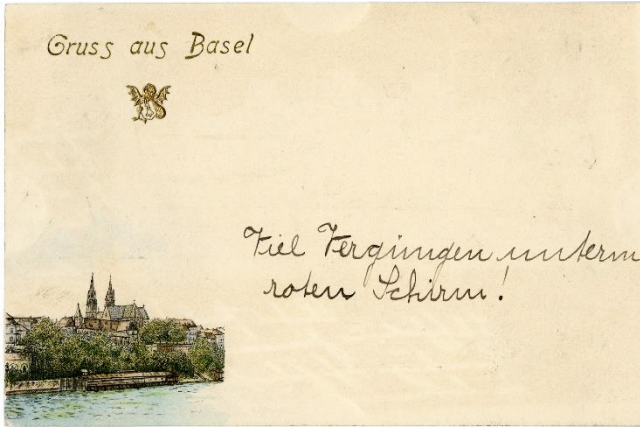 Gruss aus Basel
Viel Vergnügen unterm
roten Schirm!